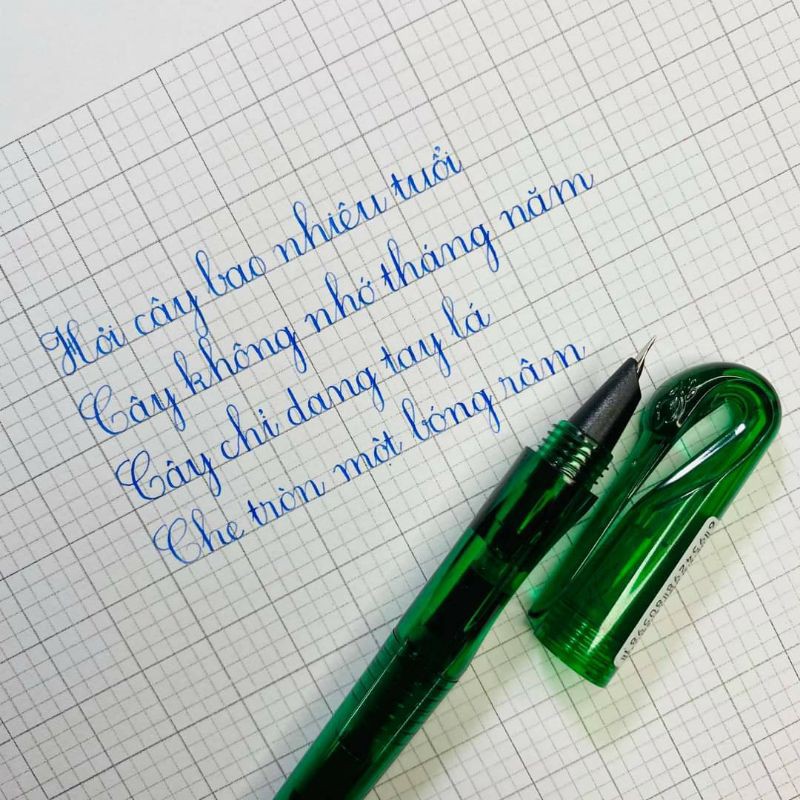 Hỏi cây bao nhiêu tuổi
Cây không nhớ tháng năm
Cây chỉ dang tay lá
Che tròn một bóng râm